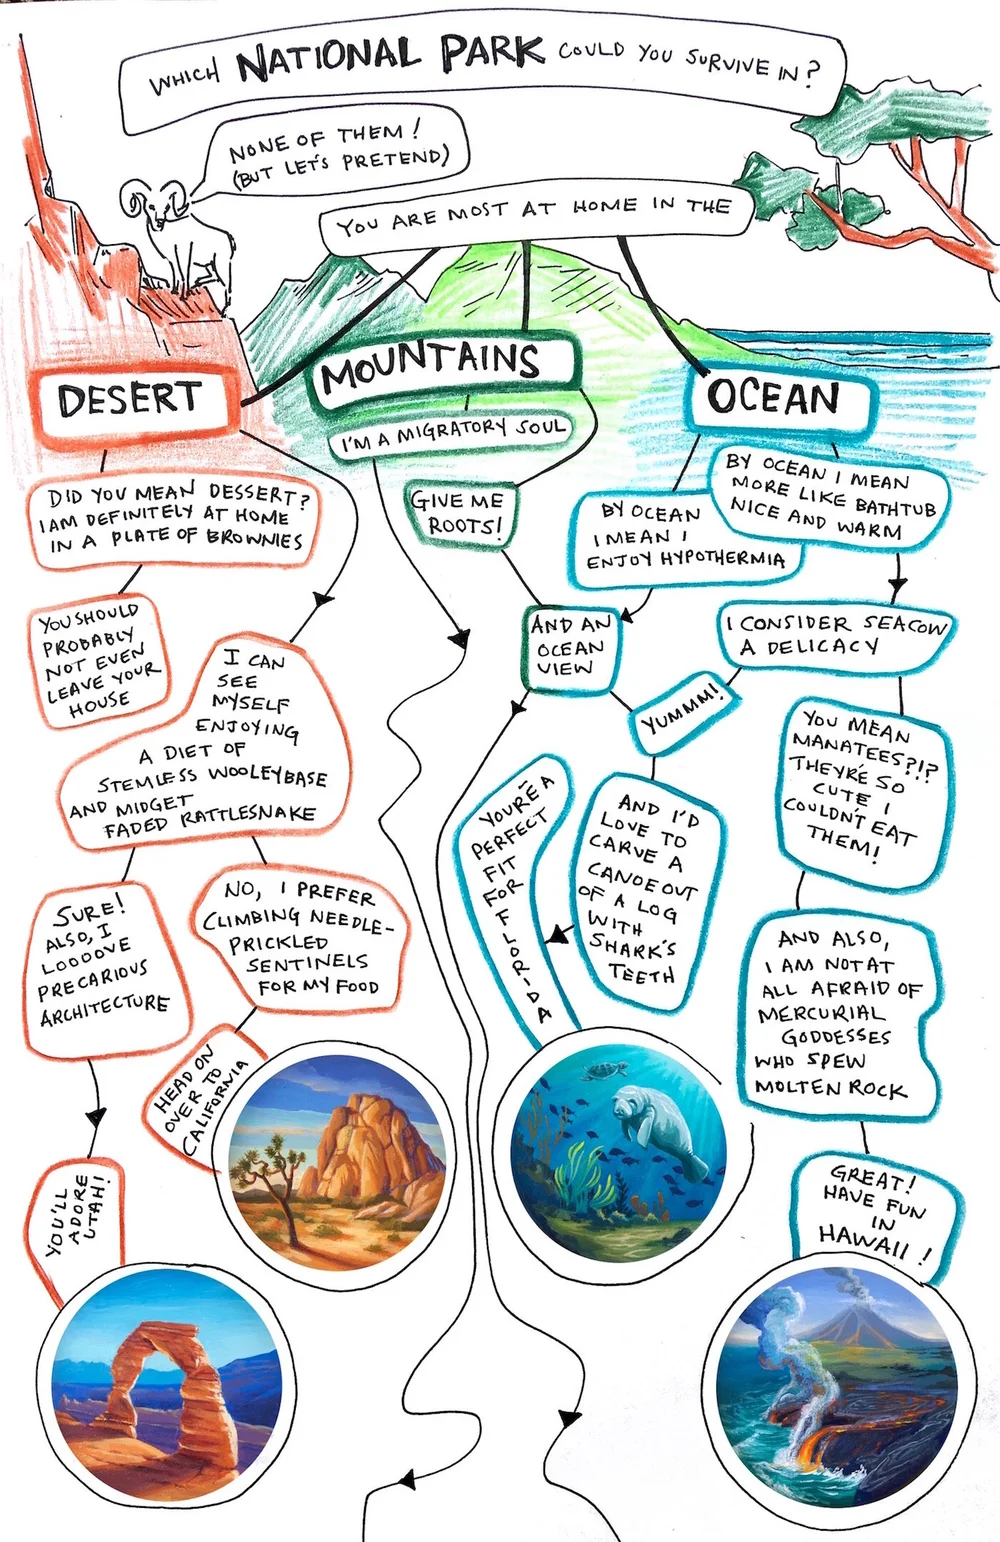 WHICH NATIONAL PARK COULD YOU SURVIVE IN?
NONE OF THEM!
(BUT LET'S PRETEND)
YOU ARE MOST AT HOME IN THE
DESERT
MOUNTAINS
OCEAN
I'M A MIGRATORY SOUL
GIVE ME
ROOTS!
DID YOU MEAN DESSERT?
I AM DEFINITELY AT HOME
IN A PLATE OF BROWNIES
YOU SHOULD
PROBABLY
NOT EVEN
LEAVE YOUR
HOUSE
I CAN
SEE
MYSELF
ENJOYING
A DIET OF
STEMLESS WOOLEYBASE
AND MIDGET
FADED RATTLESNAKE
SURE!
ALSO, I
LOOOOVE
PRECARIOUS
ARCHITECTURE
NO, I PREFER
CLIMBING NEEDLE-
PRICKLED
SENTINELS
FOR MY FOOD
HEAD ON
OVER TO
CALIFORNIA
YOU'LL
ADORE
UTAH!
BY OCEAN
I MEAN I
ENJOY HYPOTHERMIA
BY OCEAN I MEAN
MORE LIKE BATHTUB
NICE AND WARM
AND AN
OCEAN
VIEW
I CONSIDER SEACOW
A DELICACY
YUMMM!
YOU MEAN
MANATEES?!?
THEY'RE SO
CUTE I
COULDN'T EAT
THEM!
AND I'D
LOVE TO
CARVE A
CANOE OUT
OF A LOG
WITH
SHARK'S
TEETH
YOU'RE A
PERFECT
FIT
FOR
FLORIDA
AND ALSO,
I AM NOT AT
ALL AFRAID OF
MERCURIAL
GODDESSES
WHO SPEW
MOLTEN ROCK
GREAT!
HAVE FUN
IN
HAWAII!